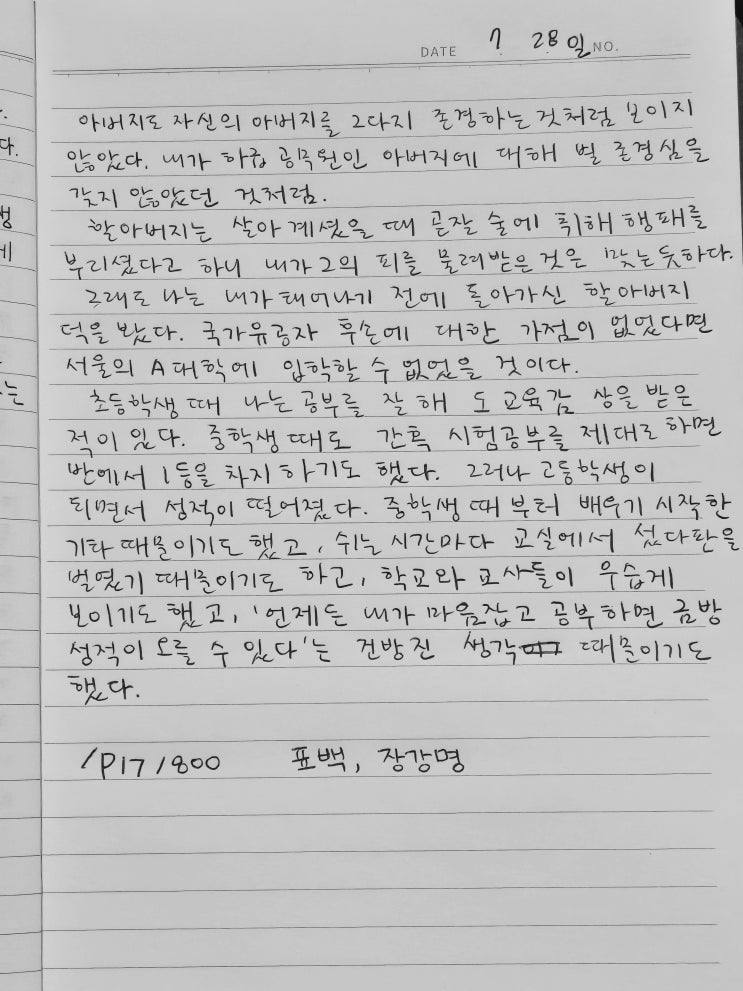 DATE 7 28일 NO.
아버지도 자신의 아버지를 그다지 존경하는 것처럼 보이지
않았다. 내가 하급 공무원인 아버지에 대해 별 존경심을
갖지 않았던 것처럼.
할아버지는 살아계셨을 때 곧잘 술에 취해 행패를
부리셨다고 하니 내가 그의 피를 물려받은 것은 맞는 듯하다.
그래도 나는 내가 태어나기 전에 돌아가신 할아버지
덕을 봤다. 국가유공자 후손에 대한 가점이 없었다면
서울의 A대학에 입학할 수 없었을 것이다.
초등학생 때 나는 공부를 잘 해 도 교육감 상을 받은
적이 있다. 중학생 때도 간혹 시험공부를 제대로 하면
반에서 1등을 차지하기도 했다. 그러나 고등학생이
되면서 성적이 떨어졌다. 중학생 때부터 배우기 시작한
기타 때문이기도 했고, 쉬는 시간마다 교실에서 섰다판을
벌였기 때문이기도 하고, 학교와 교사들이 우습게
보이기도 했고, '언제든 내가 마음잡고 공부하면 금방
성적이 오를 수 있다'는 건방진 생각 때문이기도
했다.
/P17/800 표백, 장강명
.
다.
생
에
는